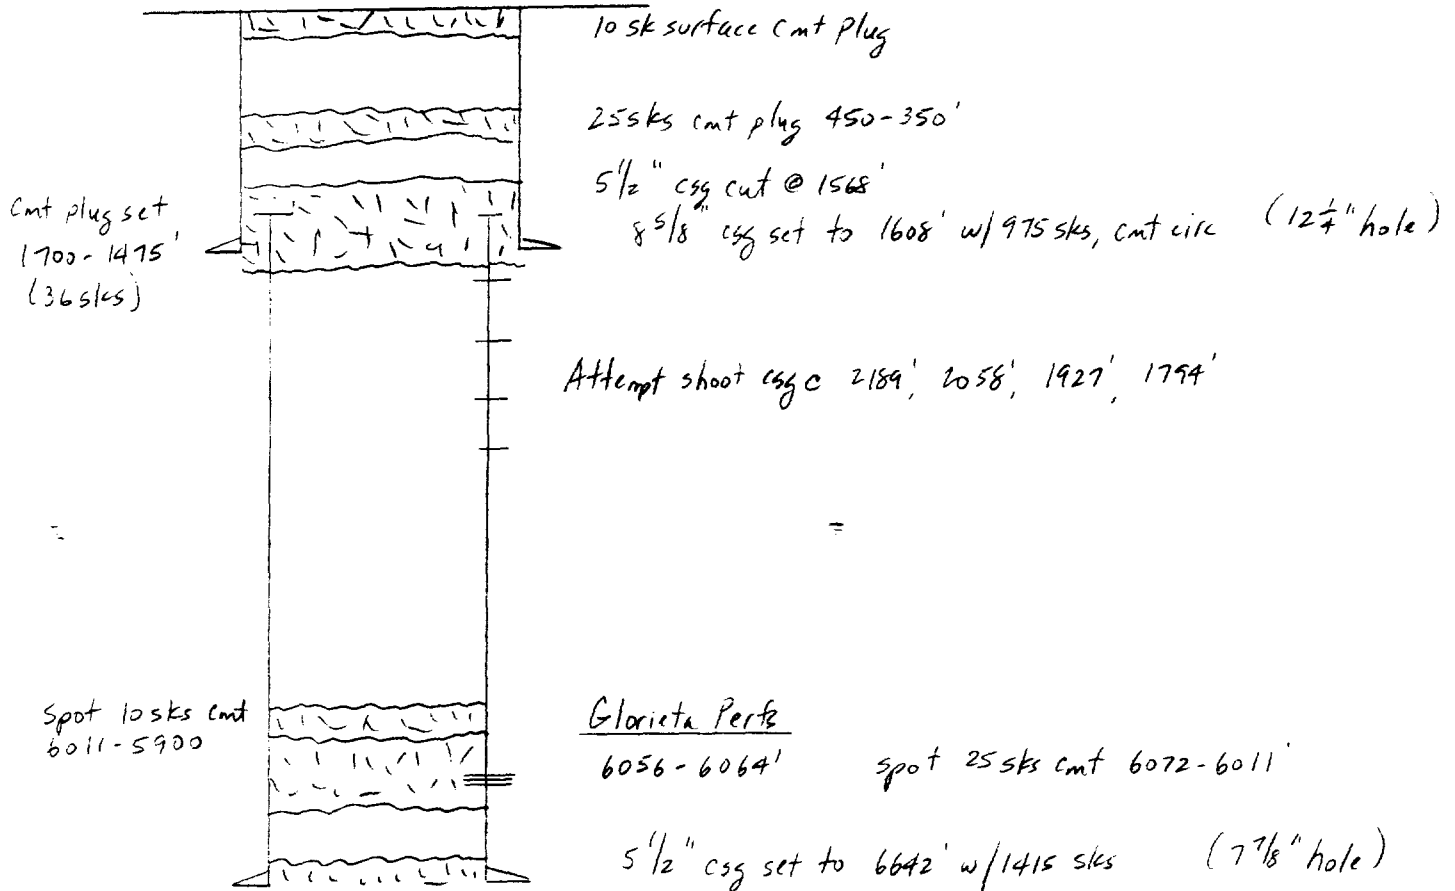 10 sk surface cmt plug
25 sks cmt plug 450-350'
5 1/2" csg cut @ 1568'
8 5/8" csg set to 1608' w/ 975 sks, cmt circ (12 1/4" hole)
Cmt plug set
1700-1475'
(36 sks)
Attempt shoot csg @ 2189', 2058', 1927', 1794'
Spot 10 sks cmt
6011-5900
Glorieta Perfs
6056-6064' spot 25 sks cmt 6072-6011'
5 1/2" csg set to 6642' w/ 1415 sks (7 7/8" hole)